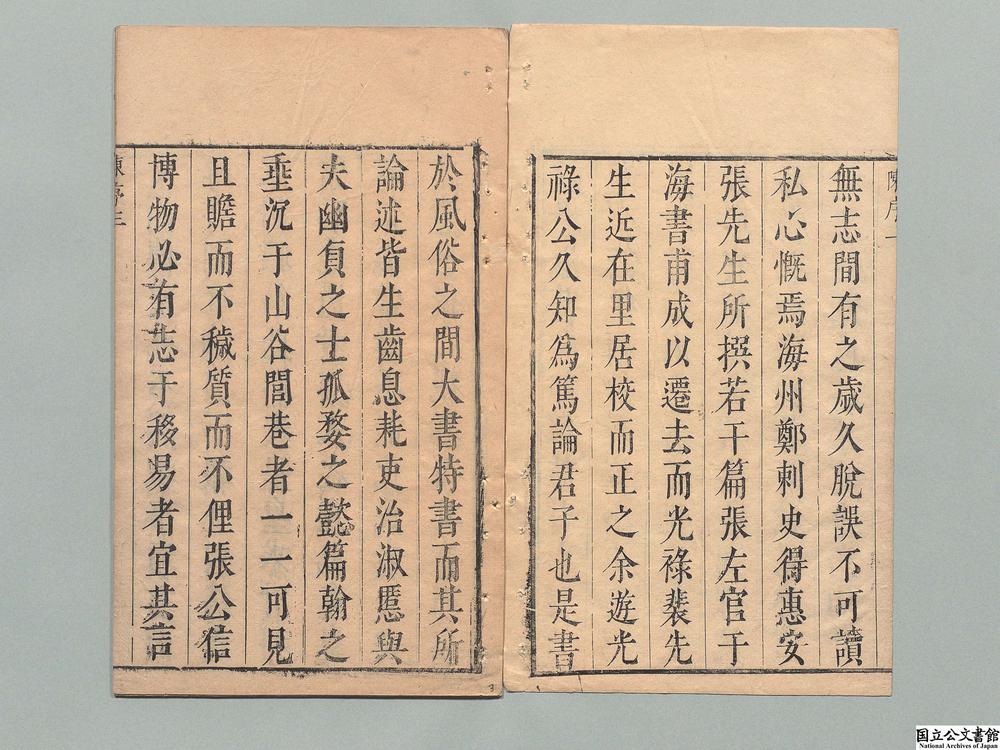 無志間有之歲久脫誤不可讀
私心慨焉海州鄭刺史得惠安
張先生所撰若干篇張左官于
海書甫成以遷去而光祿裴先
生近在里居校而正之余遊光
祿公久知為篤論君子也是書
於風俗之間大書特書而其所
論述皆生齒息耗吏治淑慝與
夫幽貞之士孤婺之懿篇翰之
垂沉于山谷閭巷者一一可見
且贍而不穢質而不俚張公信
博物必有志于移易者宜其言
国立公文書館
National Archives of Japan